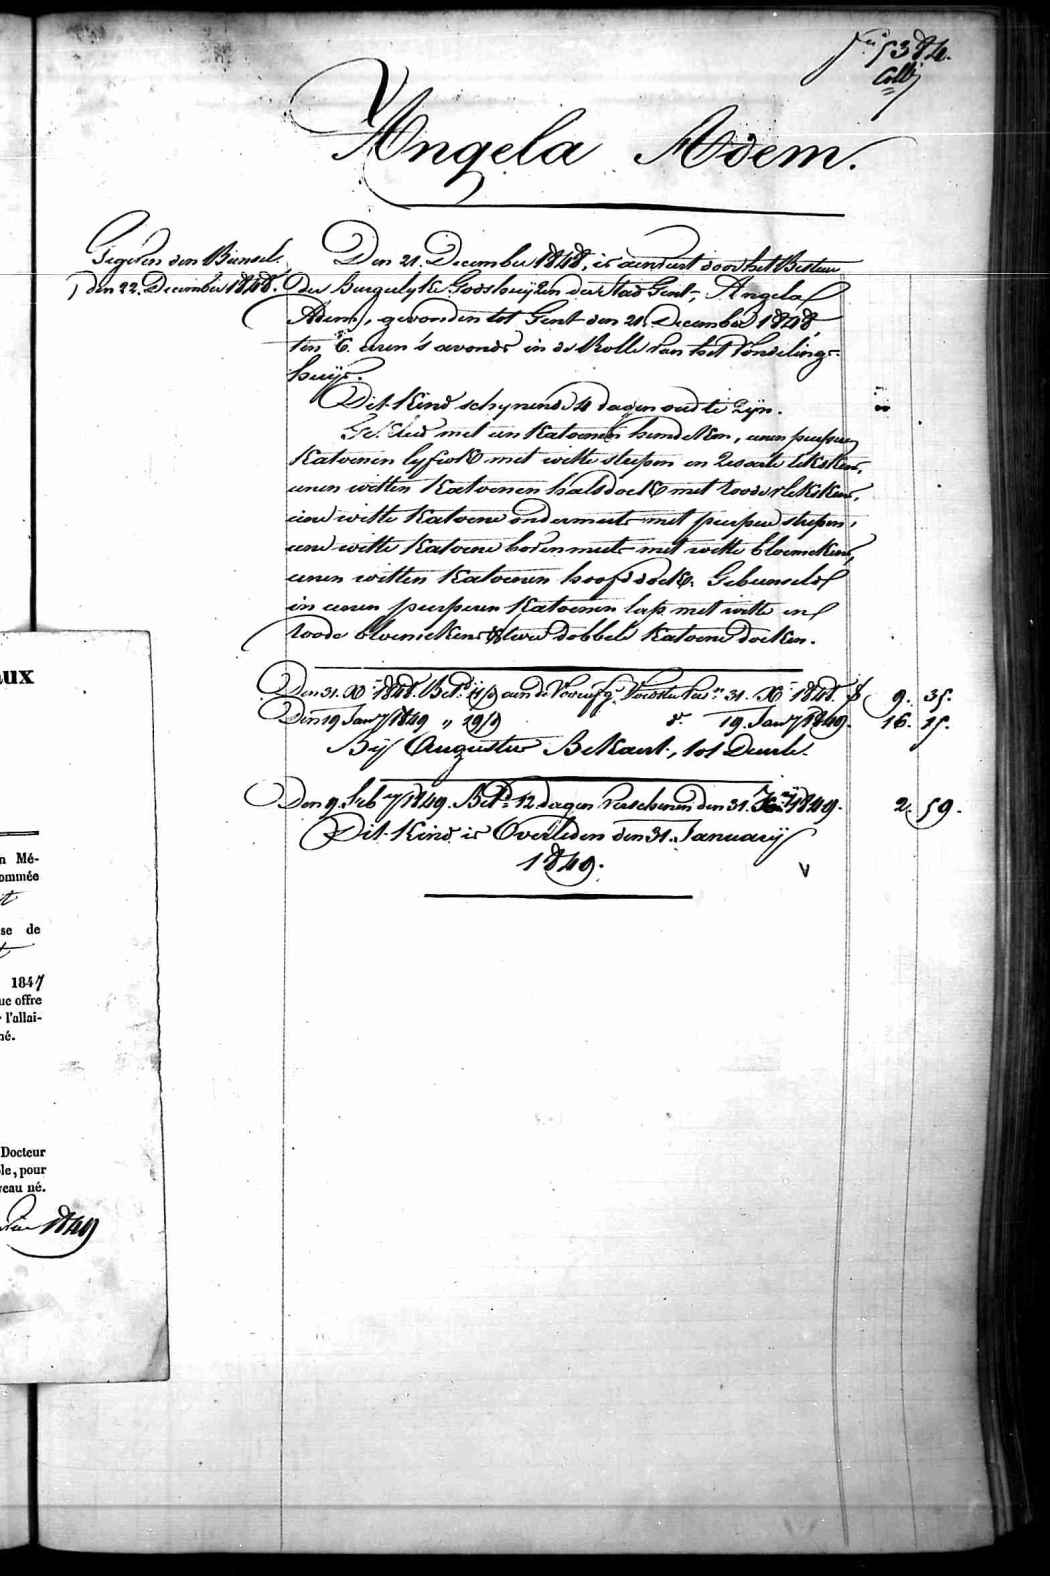 5384.
Angela Adem.
Gegeven den Bunsel
den 22. December 1848.
Den 21. December 1848, is aenveirt door het Bestuur
der Burgelyke Godshuyzen der Stad Gent, Angela
Adem, gevonden tot Gent den 21. December 1848,
ten 6. uren 's avonds in de Rolle van het Vondelings-
huys.
Dit Kind schynende 4 dagen oud te zyn.
Gekleed met een Katoenen hemdeken, eenen purpere
Katoenen lyfrok met witte strepen en zwarte lekskens,
eenen witten Katoenen halsdoek met roode vlekskens,
eene witte Katoene ondermuts met purpere strepen,
eene witte Katoene bovenmuts met witte bloemekens,
eenen witten Katoenen hoofddoek. Gebunseld
in eenen purperen Katoenen lap met witte en
roode bloemekens & twee dobbele Katoene doeken.
Den 31. Xb 1848. Bet. 11/d aen de 31. Xb 1848. f 9. 35.
Den 19 Jany 1849 " 19/d d° 19. Jany 1849. 16. 15.
Bij Augustus BeKaert, tot Deurle.
Den 9. Feby 1849. Bet. 12 dagen verschenen den 31. 1849. 2. 59.
Dit Kind is Overleden den 31. Januarij
1849.
V
aux
n Mé-
ommée
se de
1847
ue offre
r l'allai-
né.
Docteur
le, pour
veau né.
1849